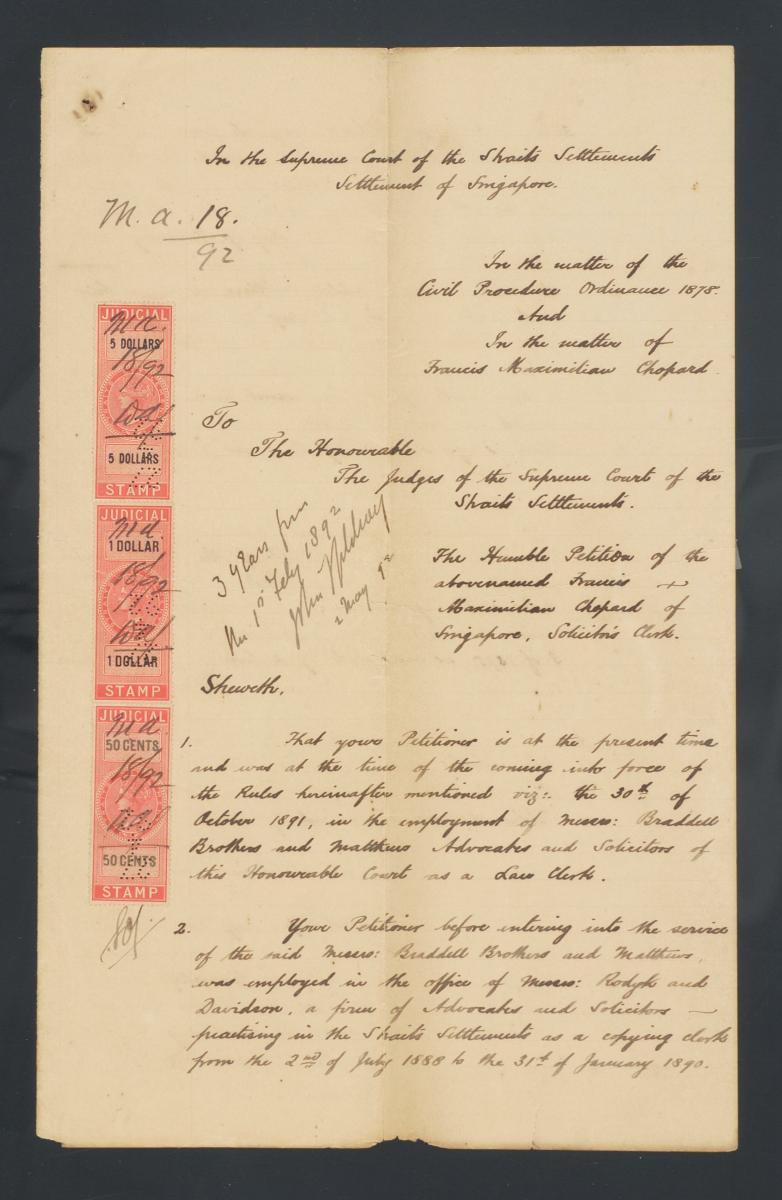 In the Supreme Court of the Straits Settlements
Settlement of Singapore.
M. a. 18.
92
In the matter of the
Civil Procedure Ordinance 1878.
And
In the matter of
Francis Maximilian Chopard
To
The Honourable
The Judges of the Supreme Court of the
Straits Settlements.
3 years from
the 1st Feby 1892
John
2 May 92
The Humble Petition of the
abovenamed Francis
Maximilian Chopard of
Singapore, Solicitor's Clerk.
Sheweth,
JUDICIAL
M a.
5 DOLLARS
18/92
5 DOLLARS
STAMP
JUDICIAL
M a
1 DOLLAR
18/92
1 DOLLAR
STAMP
JUDICIAL
M a
50 CENTS
18/92
50 CENTS
STAMP
1. That your Petitioner is at the present time
and was at the time of the coming into force of
the Rules hereinafter mentioned viz:. the 30th of
October 1891, in the employment of Messrs: Braddell
Brothers and Matthews Advocates and Solicitors of
this Honourable Court as a Law Clerk.
2. Your Petitioner before entering into the service
of the said Messrs: Braddell Brothers and Matthews,
was employed in the office of Messrs: Rodyk and
Davidson, a firm of Advocates and Solicitors
practising in the Straits Settlements as a copying clerk
from the 2nd of July 1888 to the 31st of January 1890.